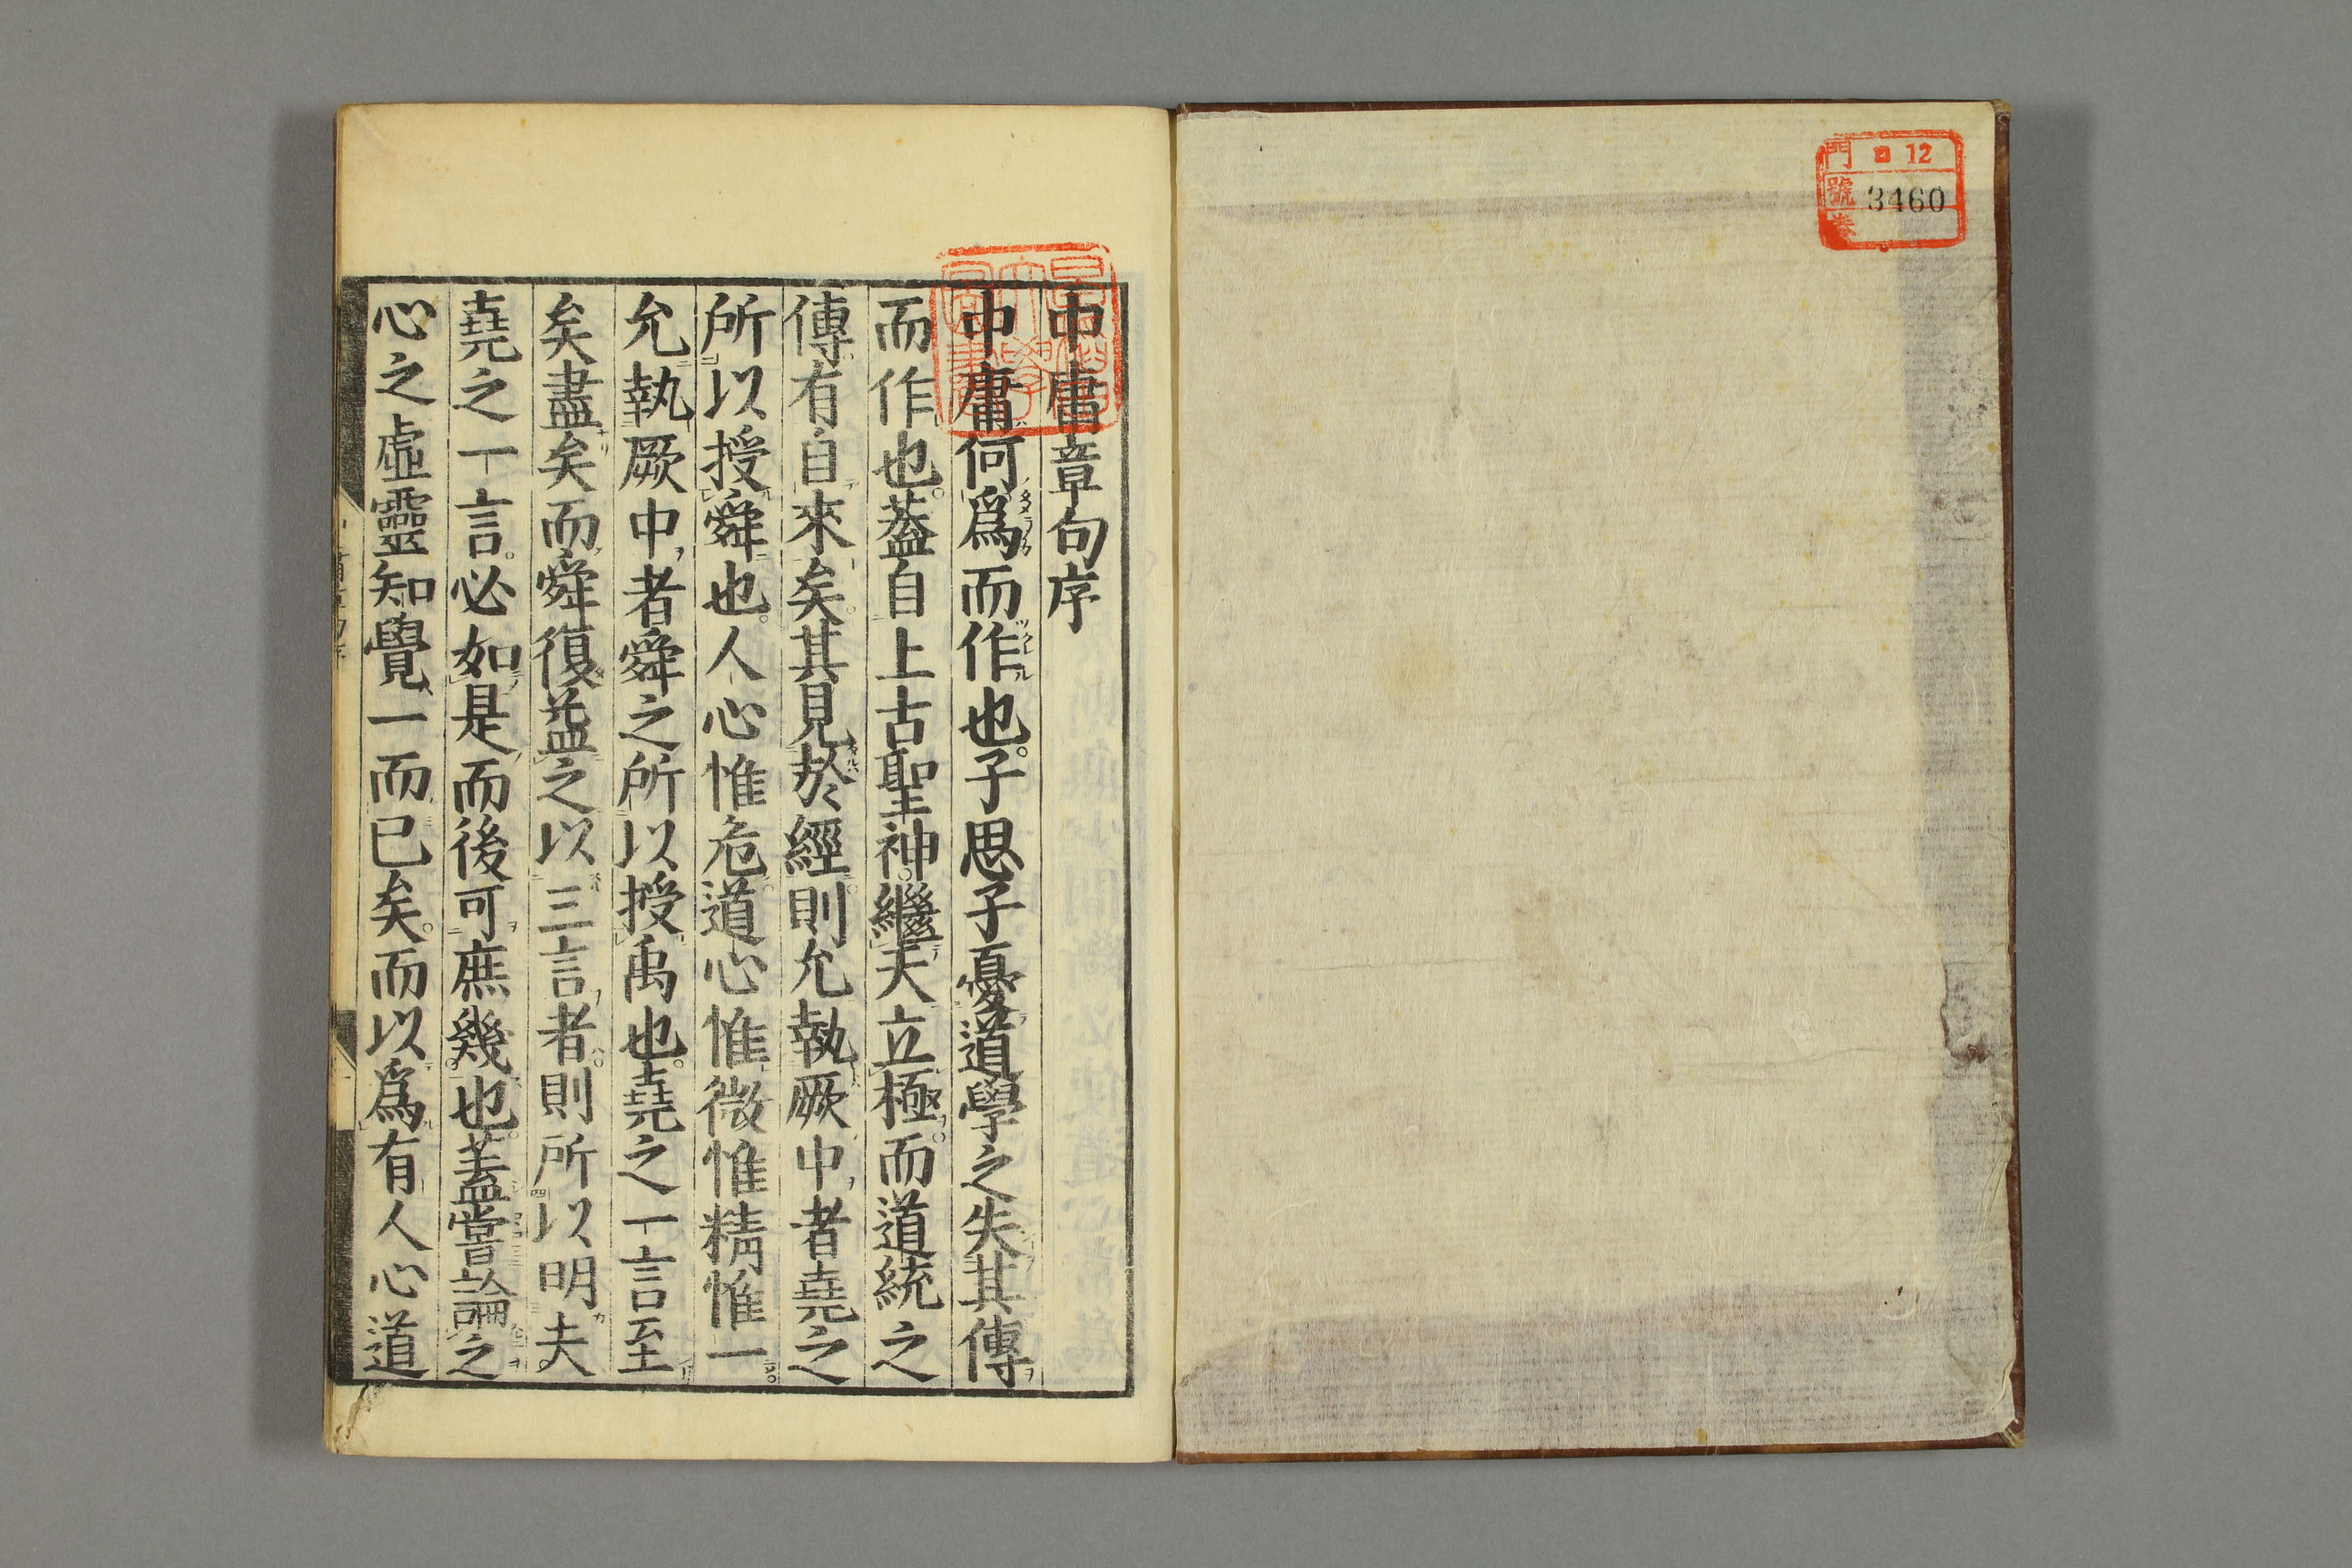 門 ロ 12
號 3460
卷
中庸章句序
中庸何爲而作也子思子憂道學之失其傳
而作也蓋自上古聖神繼天立極而道統之
傳有自來矣其見於經則允執厥中者堯之
所以授舜也人心惟危道心惟微惟精惟一
允執厥中者舜之所以授禹也堯之一言至
矣盡矣而舜復益之以三言者則所以明夫
堯之一言必如是而後可庶幾也蓋嘗論之
心之虛靈知覺一而已矣而以爲有人心道